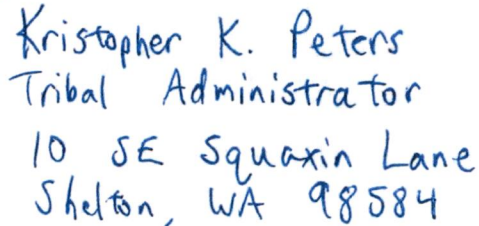 Kristopher K. Peters
Tribal Administrator
10 SE Squaxin Lane
Shelton, WA 98584